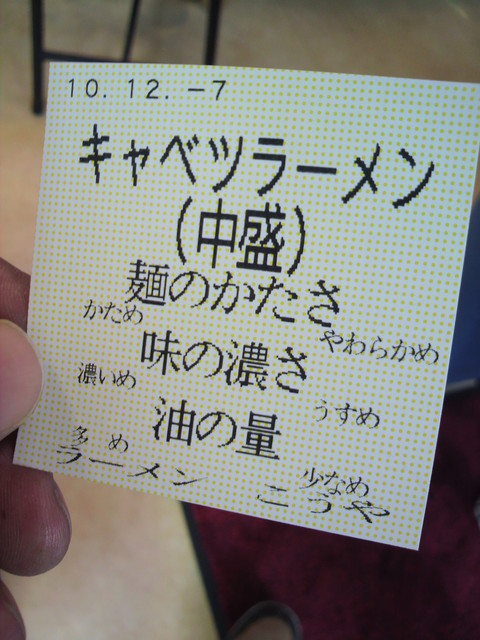 10. 12. -7
キャベツラーメン
(中盛)
麺のかたさ
かため やわらかめ
味の濃さ
濃いめ うすめ
油の量
多め 少なめ
ラーメン こうや